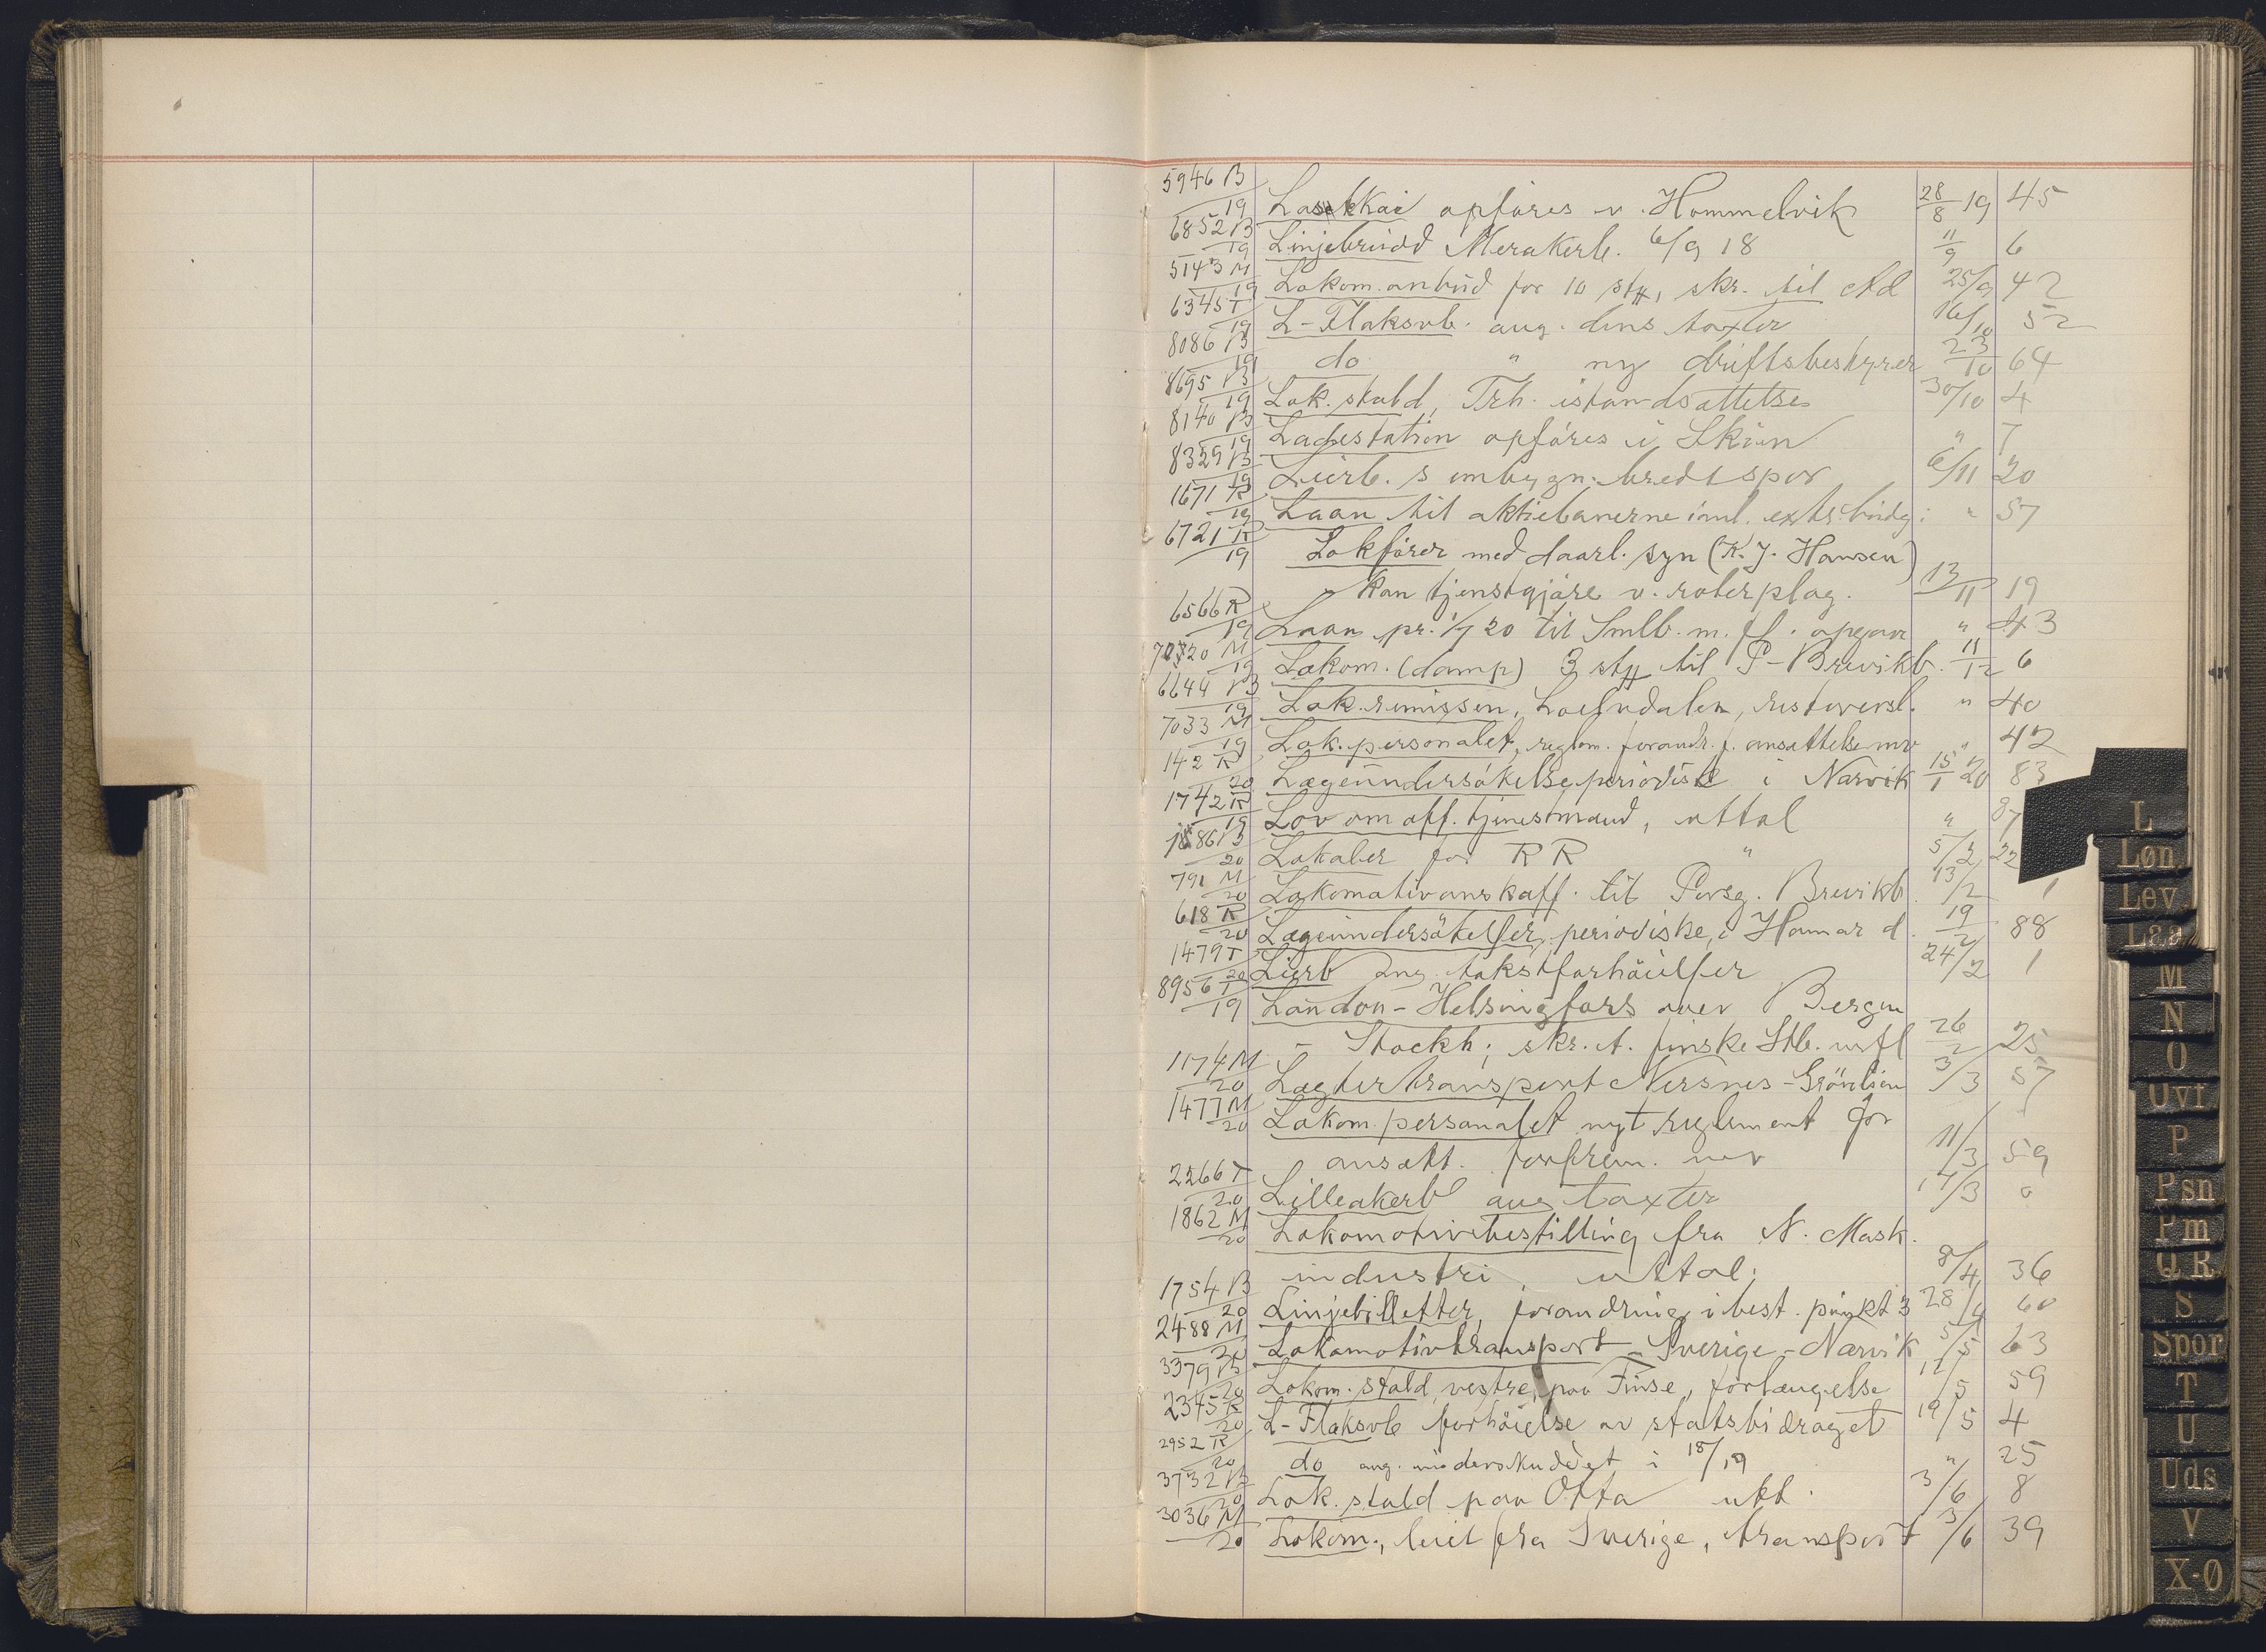 5946 B/19 Lossekai opføres v. Hommelvik 28/8 19 45
6852 B/19 Linjebrudd Merakerb. 6/9 18 11/9 6
5143 M/19 Lokom. anbud for 10 stk, skr. til Ad 25/9 42
6345 T/19 L-Flaksvb. ang. dens taxter 16/10 52
8086 B/19 do " ny driftsbestyrer 23/10 64
8695 B/19 Lok. stald, Trh. istandsættelse 30/10 4
8140 B/19 Ladestation opføres i Skien " 7
8329 B/19 Lierb.s ombygn. bredt spor 6/11 20
1671 R/19 Laan til aktiebanerne " 57
6721 R/19 Lokfører med daarl. syn (K. J. Hansen)
kan tjenstgjøre v. 13/11 19
6566 R/19 Laan pr. 1/7 20 til Smlb. m. fl. opgav " 43
7320 M/19 Lokom. (damp) 3 stk til P-Brevikb. 11/12 6
6644 B/19 Lok. remissen, Loendalen, " 40
7033 M/19 Lok. personalet, reglem. forandr. f. ansættelse mv " 42
142 R/20 Lægeundersøkelse periodisk i Narvik 15/1 20 83
1742 R/19 Lov om off. tjenestmænd, uttal " 87
1886 B/20 Lokaler for RR " 5/2 22
791 M/20 Lokomotivanskaff. til Porsg. Brevikb. 13/2 1
618 R/20 Lægeundersøkelser, periodiske, i Hamar d. 19/2 88
1479 T/20 Lierb ang. takstforhöielser 24/2 1
8956 T/19 London - Helsingfors over Bergen
- Stockh; skr. t. finske Stb. 26/2 25
1174 M/20 Lægtertransport Nersnes - 3/3 57
1477 M/20 Lokom. personalet nyt reglement for
ansætt. forfrem. mv 11/3 59
2266 T/20 Lilleakerb ang taxter 17/3 0
1862 M/20 Lokomotivbestilling fra N. Mask.
industri, uttal. 8/4 36
1754 B/20 Linjebilletter, forandring i best. punkt 3 28/4 60
2488 M/20 Lokomotivtransport - Sverige - Narvik 5/5 63
3379 B/20 Lokom. stald, vestre, paa Finse, forlængelse 12/5 59
2345 R/20 L-Flaksvb forhöielse av statsbidraget 19/5 4
2952 R/20 do ang. underskuddet i 18/19 " 25
3732 B/20 Lok. stald paa Otta utt. 3/6 8
3036 M/20 Lokom., leiet fra Sverige, transport 3/6 39
L
Løn
Lev
Laa
M
N
O
Ovf
P
Psn
Pm
Q R
S
Spor
T
U
Uds
V
X-Ø